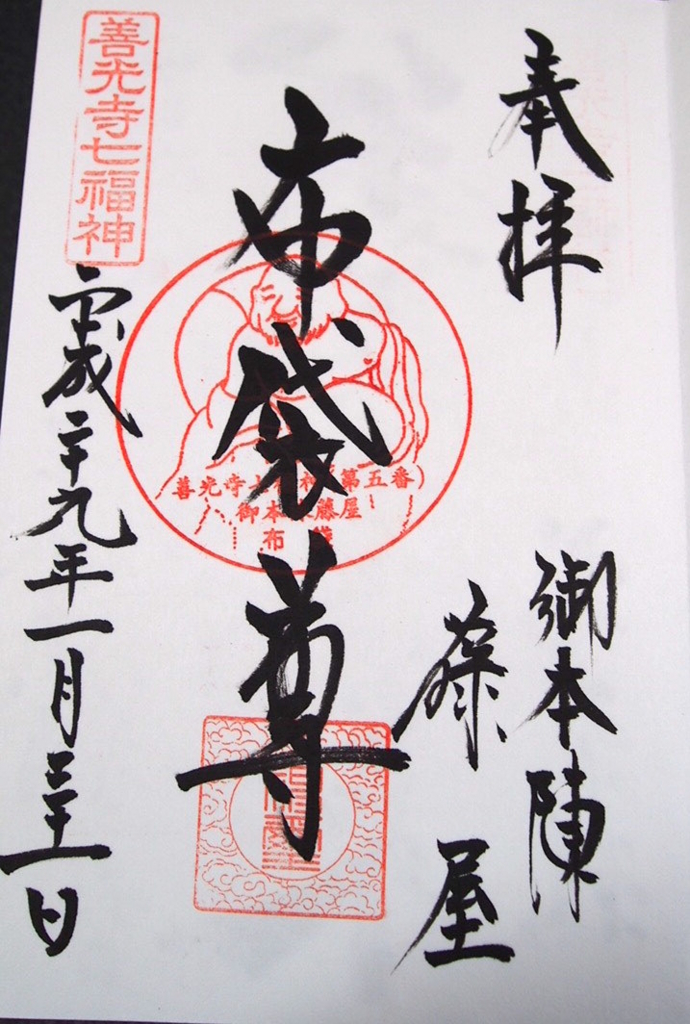 奉拝
御本陣
藤屋
布袋尊
善光寺七福神
善光寺七福神(第五番)
御本陣藤屋
布袋
平成二十九年一月三十一日